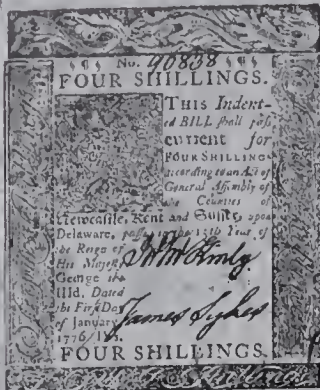 No. 90838
FOUR SHILLINGS.
THIS Indent-
ed BILL shall pass
current for
FOUR SHILLINGS
according to an Act of
General Assembly of
the Counties of
Newcastle, Kent and Sussex, upon
Delaware, passed in the 15th Year of
the Reign of
His Majesty
George the
IIId. Dated
the First Day
of January
1776.
James Sykes
FOUR SHILLINGS.